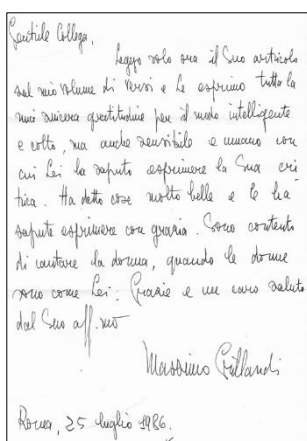 Gentile Collega,
Leggo solo ora il Suo articolo
sul mio volume di versi e Le esprimo tutta la
mia sincera gratitudine per il modo intelligente
e colto, ma anche sensibile e umano con
cui Lei ha saputo esprimere la Sua cri
tica. Ha detto cose molto belle e le ha
sapute esprimere con grazia. Sono contento
di cantare la donna, quando le donne
sono come Lei. Grazie e un caro saluto
dal Suo aff.mo
Massimo Grillandi
Roma, 25 luglio 1986.